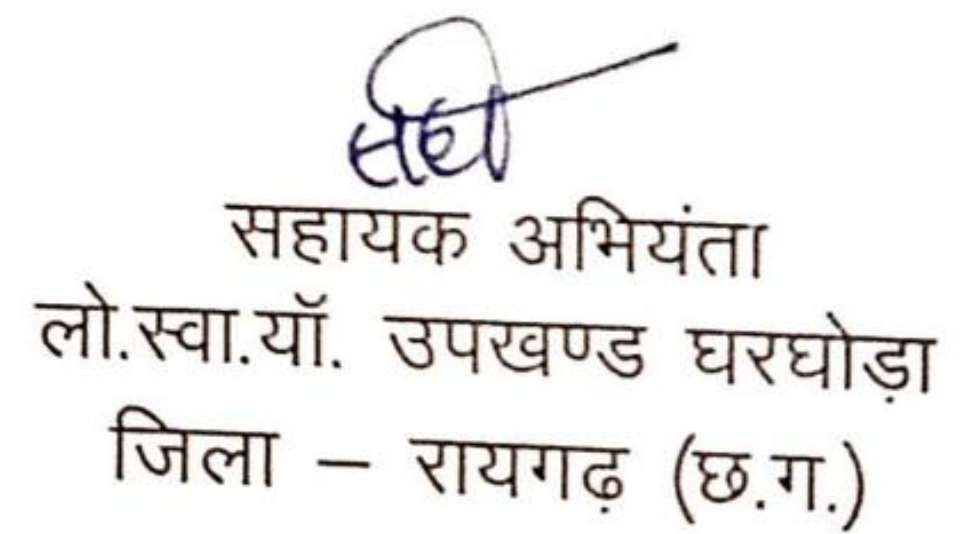 सहायक अभियंता
लो.स्वा.यॉ. उपखण्ड घरघोड़ा
जिला – रायगढ़ (छ.ग.)